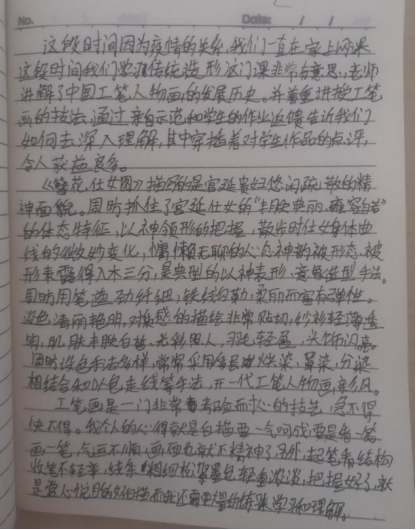 No. Date: / /
这段时间因为疫情的关系,我们一直在家上网课
这段时间我们学习传统造形这门课非常有意思,老师
讲解了中国工笔人物画的发展历史。并着重讲授工笔
画的技法,通过亲自示范和学生的作业反馈告诉我们
如何去深入理解,其中穿插着对学生作品的点评,
令人获益良多。
《簪花仕女图》描绘的是宫廷贵妇悠闲疏散的精
神面貌。周昉抓住了宫廷仕女的"丰腴典丽、雍容自若"
的体态特征,以神领形的把握,散步时仕女身体曲
线的微妙变化,慵懒无聊的人心神韵被形态被
形表露得入木三分,是典型的以神写形,意象造型手法。
周昉用笔,遒劲纤细,铁线勾勒,柔丽而富有弹性。
设色清丽艳明,对质感的描绘非常贴切,纱衫轻薄透
明,肌肤丰腴白皙,羽毛轻盈,头饰闪亮
周昉设色手法多样,常常采用烘染,罩染,分染
相结合和以色走线等手法,开一代工笔人物画新风。
工笔画是一门非常考验耐心的技艺,急不得
快不得。我个人的心得就是白描要一气呵成要是看一笔
画一笔,气息不顺,画面也就不精神了。另外,起笔看结构
收笔不轻率,线条粗细松紧墨色轻重浓淡,把握好了,就
是赏心悦目的好白描而